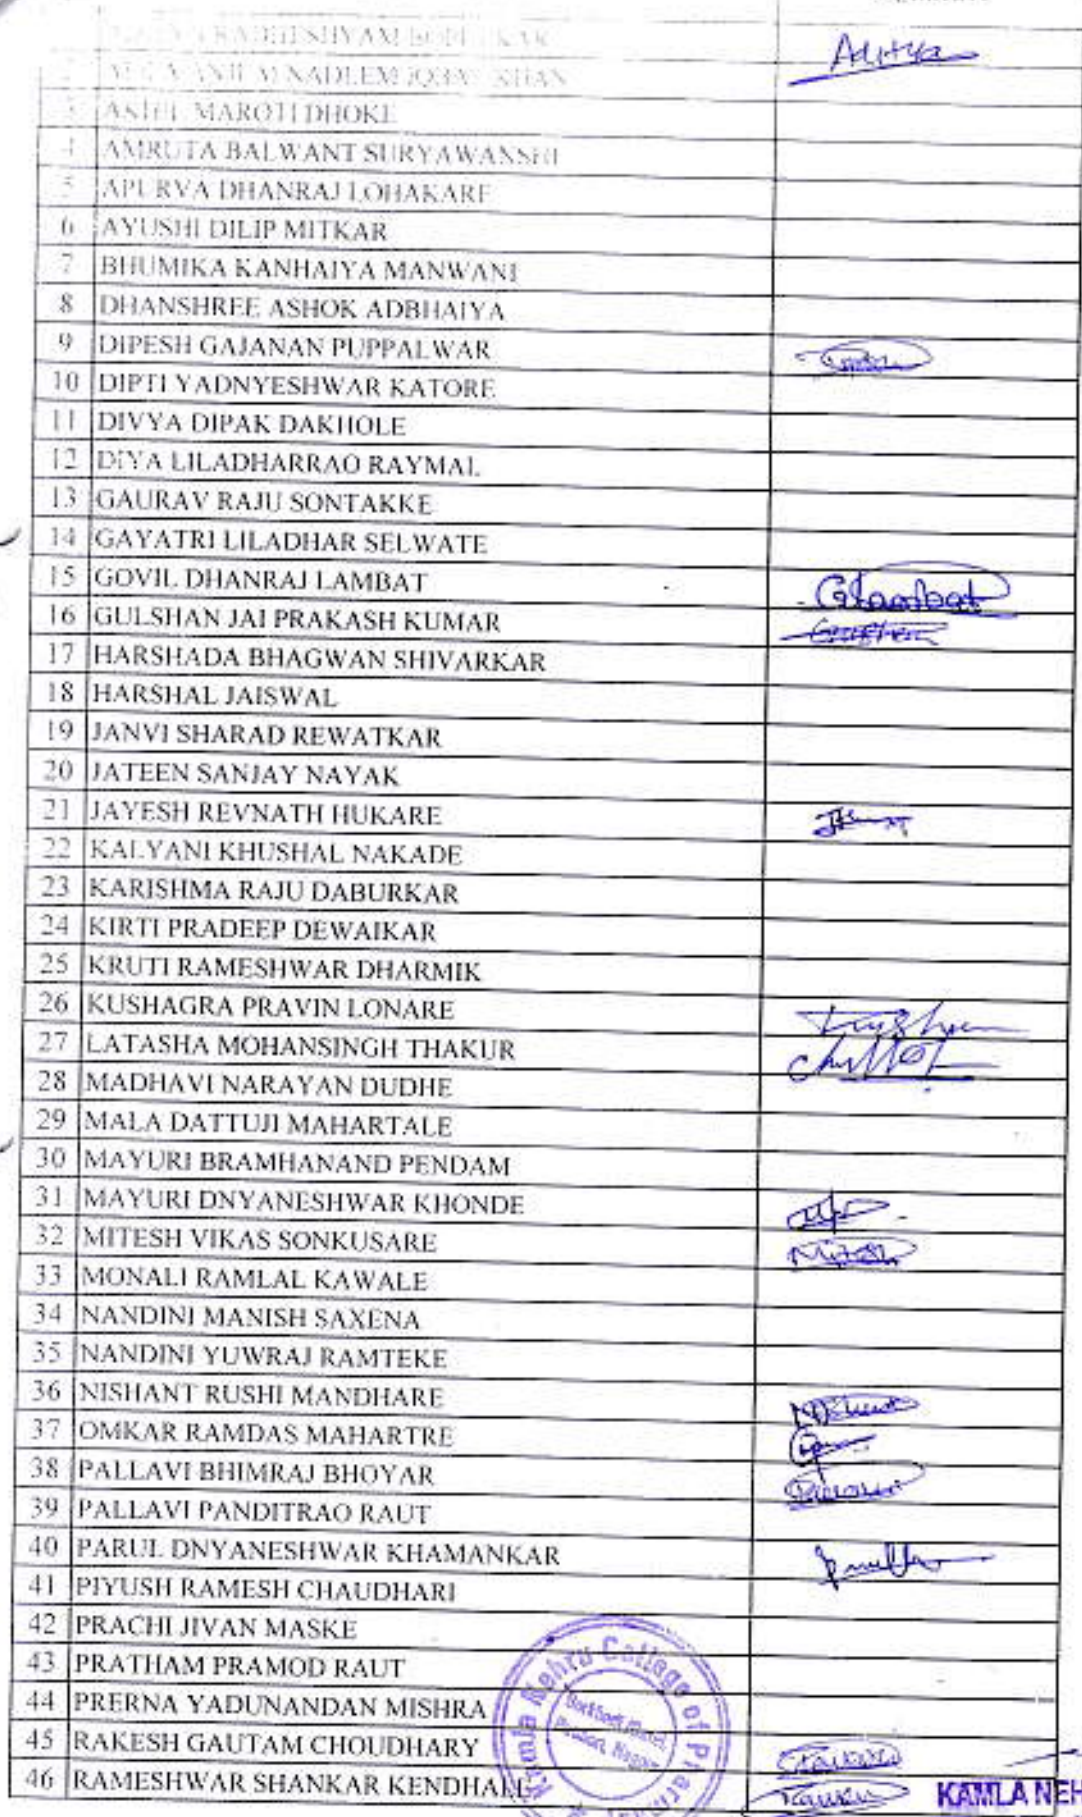 RADHESHYAM
Aditya
2 NADEEM KHAN
3 MAROTI DHOKE
4 AMRUTA BALWANT SURYAWANSHI
5 APURVA DHANRAJ LOHAKARE
6 AYUSHI DILIP MITKAR
7 BHUMIKA KANHAIYA MANWANI
8 DHANSHREE ASHOK ADBHAIYA
9 DIPESH GAJANAN PUPPALWAR
10 DIPTI YADNYESHWAR KATORE
11 DIVYA DIPAK DAKHOLE
12 DIYA LILADHARRAO RAYMAL
13 GAURAV RAJU SONTAKKE
14 GAYATRI LILADHAR SELWATE
15 GOVIL DHANRAJ LAMBAT Glambat
16 GULSHAN JAI PRAKASH KUMAR Gulshan
17 HARSHADA BHAGWAN SHIVARKAR
18 HARSHAL JAISWAL
19 JANVI SHARAD REWATKAR
20 JATEEN SANJAY NAYAK
21 JAYESH REVNATH HUKARE
22 KALYANI KHUSHAL NAKADE
23 KARISHMA RAJU DABURKAR
24 KIRTI PRADEEP DEWAIKAR
25 KRUTI RAMESHWAR DHARMIK
26 KUSHAGRA PRAVIN LONARE
27 LATASHA MOHANSINGH THAKUR
28 MADHAVI NARAYAN DUDHE
29 MALA DATTUJI MAHARTALE
30 MAYURI BRAMHANAND PENDAM
31 MAYURI DNYANESHWAR KHONDE
32 MITESH VIKAS SONKUSARE Mitesh
33 MONALI RAMLAL KAWALE
34 NANDINI MANISH SAXENA
35 NANDINI YUWRAJ RAMTEKE
36 NISHANT RUSHI MANDHARE Nishant
37 OMKAR RAMDAS MAHARTRE
38 PALLAVI BHIMRAJ BHOYAR
39 PALLAVI PANDITRAO RAUT
40 PARUL DNYANESHWAR KHAMANKAR
41 PIYUSH RAMESH CHAUDHARI
42 PRACHI JIVAN MASKE
43 PRATHAM PRAMOD RAUT
44 PRERNA YADUNANDAN MISHRA
45 RAKESH GAUTAM CHOUDHARY
46 RAMESHWAR SHANKAR KENDHALE
Kamla Nehru College of
KAMLA NEH